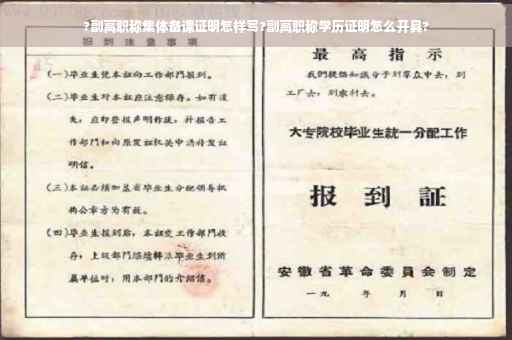 ?副高职称集体备课证明怎样写?副高职称学历证明怎么开具?
报到注意事項
(一)毕业生凭本証向工作部門报到。
(二)毕业生对本証应注意保存。如有遺
失,应即登报声明作廢,并报告工
作部門和向原发証机关申請补发証
明信。
(三)本証必須加盖省毕业生分配領导机
构公章方为有效。
(四)毕业生报到后,本証交工作部門收
存;上級部門
毕业生到所
属单位时,用本部門的介紹信。
最高指示
我們提倡知識分子到羣众中去,到
工厂去,到农村去。
大专院校毕业生統一分配工作
报到証
安徽省革命委員会制定
一九 年 月 日